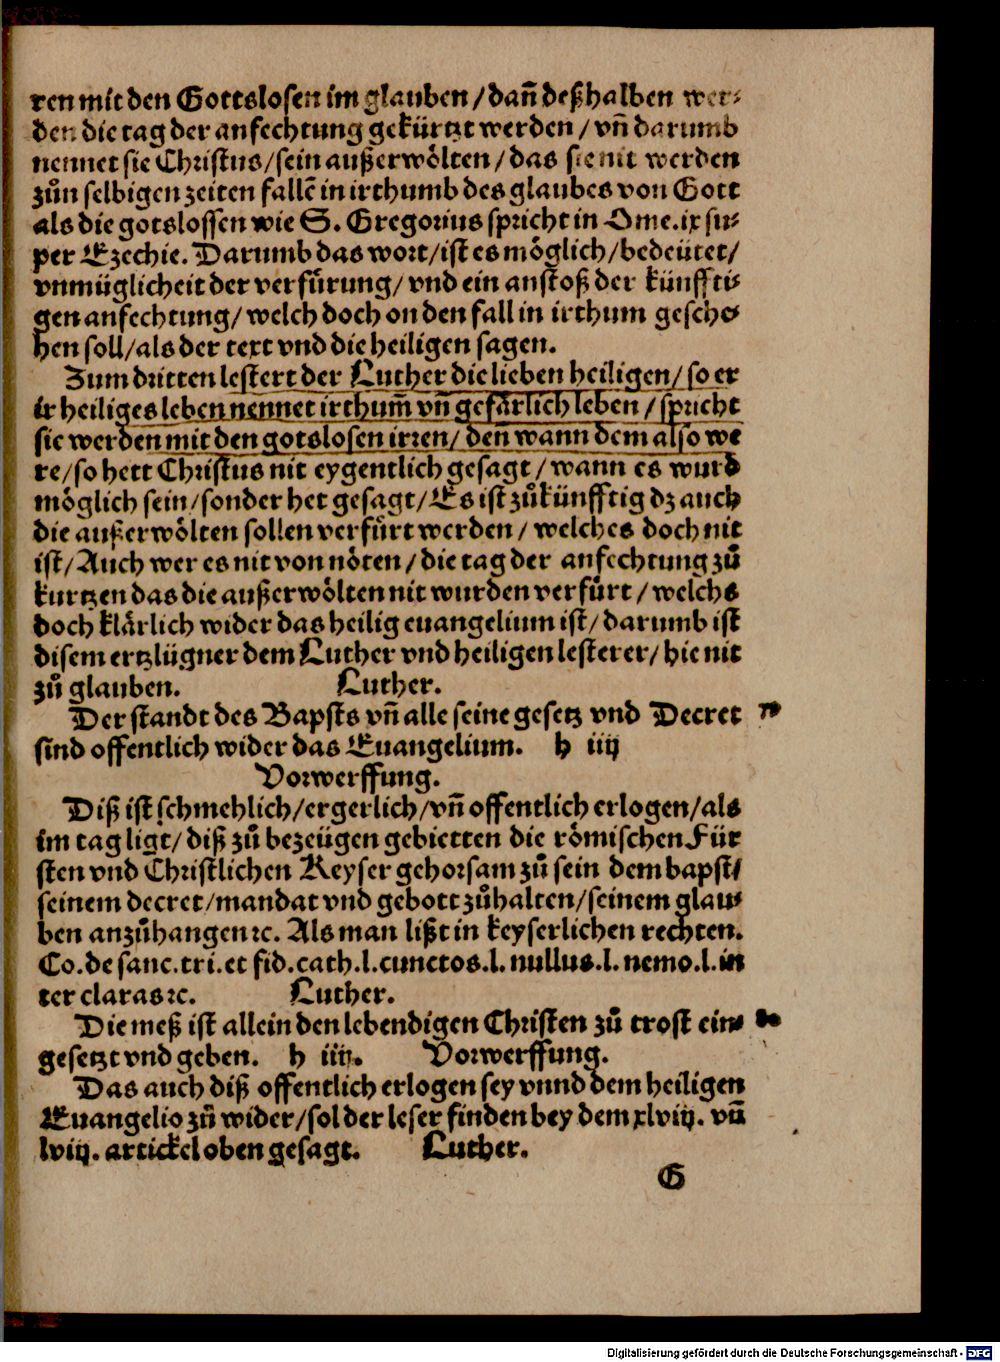 ren mit den Gottslosen im glauben / dañ deßhalben wer⸗
den die tag der anfechtung gekürtzt werden / vñ darumb
nennet sie Christus / sein außerwölten / das sie nit werden
zůn selbigen zeiten fallē in irthumb des glaubes von Gott
als die gotslossen wie S. Gregorius spricht in Ome. ix su⸗
per Ezechie. Darumb das wort / ist es möglich / bedeütet /
vnmüglicheit der verfůrung / vnd ein anstoß der künffti⸗
gen anfechtung / welch doch on den fall in irthum gesche⸗
hen soll / als der text vnd die heiligen sagen.
Zum dritten lestert der Luther die lieben heiligen / so er
ir heiliges leben nennet irthum̃ vñ gefärlich leben / spricht
sie werden mit den gotslosen irren / den wann dem also we
re / so hett Christus nit eygentlich gesagt / wann es wurd
möglich sein / sonder het gesagt / Es ist zůkünfftig dz auch
die außerwölten sollen verfůrt werden / welches doch nit
ist / Auch wer es nit von nöten / die tag der anfechtung zů
kurtzen das die außerwölten nit wurden verfůrt / welchs
doch klärlich wider das heilig euangelium ist / darumb ist
disem ertzlügner dem Luther vnd heiligen lesterer / hie nit
zů glauben. Luther.
Der standt des Bapsts vñ alle seine gesetz vnd Decret
sind offentlich wider das Euangelium. h iiij
Vorwerffung.
Diß ist schmehlich / ergerlich / vñ offentlich erlogen / als
im tag ligt / diß zů bezeügen gebietten die römischen Für
sten vnd Christlichen Keyser gehorsam zů sein dem bapst /
seinem decret / mandat vnd gebott zůhalten / seinem glau⸗
ben anzůhangen ⁊c. Als man lißt in keyserlichen rechten.
Co. de sanc. tri. et fid. cath. l. cunctos. l. nullus. l. nemo. l. in
ter claras ⁊c. Luther.
Die meß ist allein den lebendigen Christen zů trost ein⸗
gesetzt vnd geben. h iiij. Vorwerffung.
Das auch diß offentlich erlogen sey vnnd dem heiligen
Euangelio zů wider / sol der leser finden bey dem xlviij. vñ
lviij. artickel oben gesagt. Luther.
G
Digitalisierung gefördert durch die Deutsche Forschungsgemeinschaft - DFG